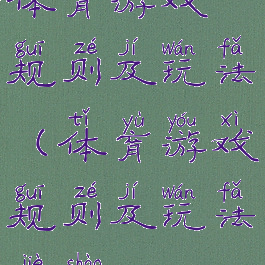 体育游戏
guī zé jí wán fǎ
规则及玩法
tǐ yù yóu xì
(体育游戏
guī zé jí wán fǎ
规则及玩法
jiè shào